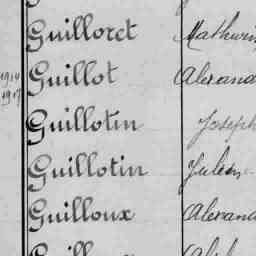 Guilloret Mathurin
1914 Guillot Alexand
1917
Guillotin Joseph
Guillotin Julien
Guilloux Alexand